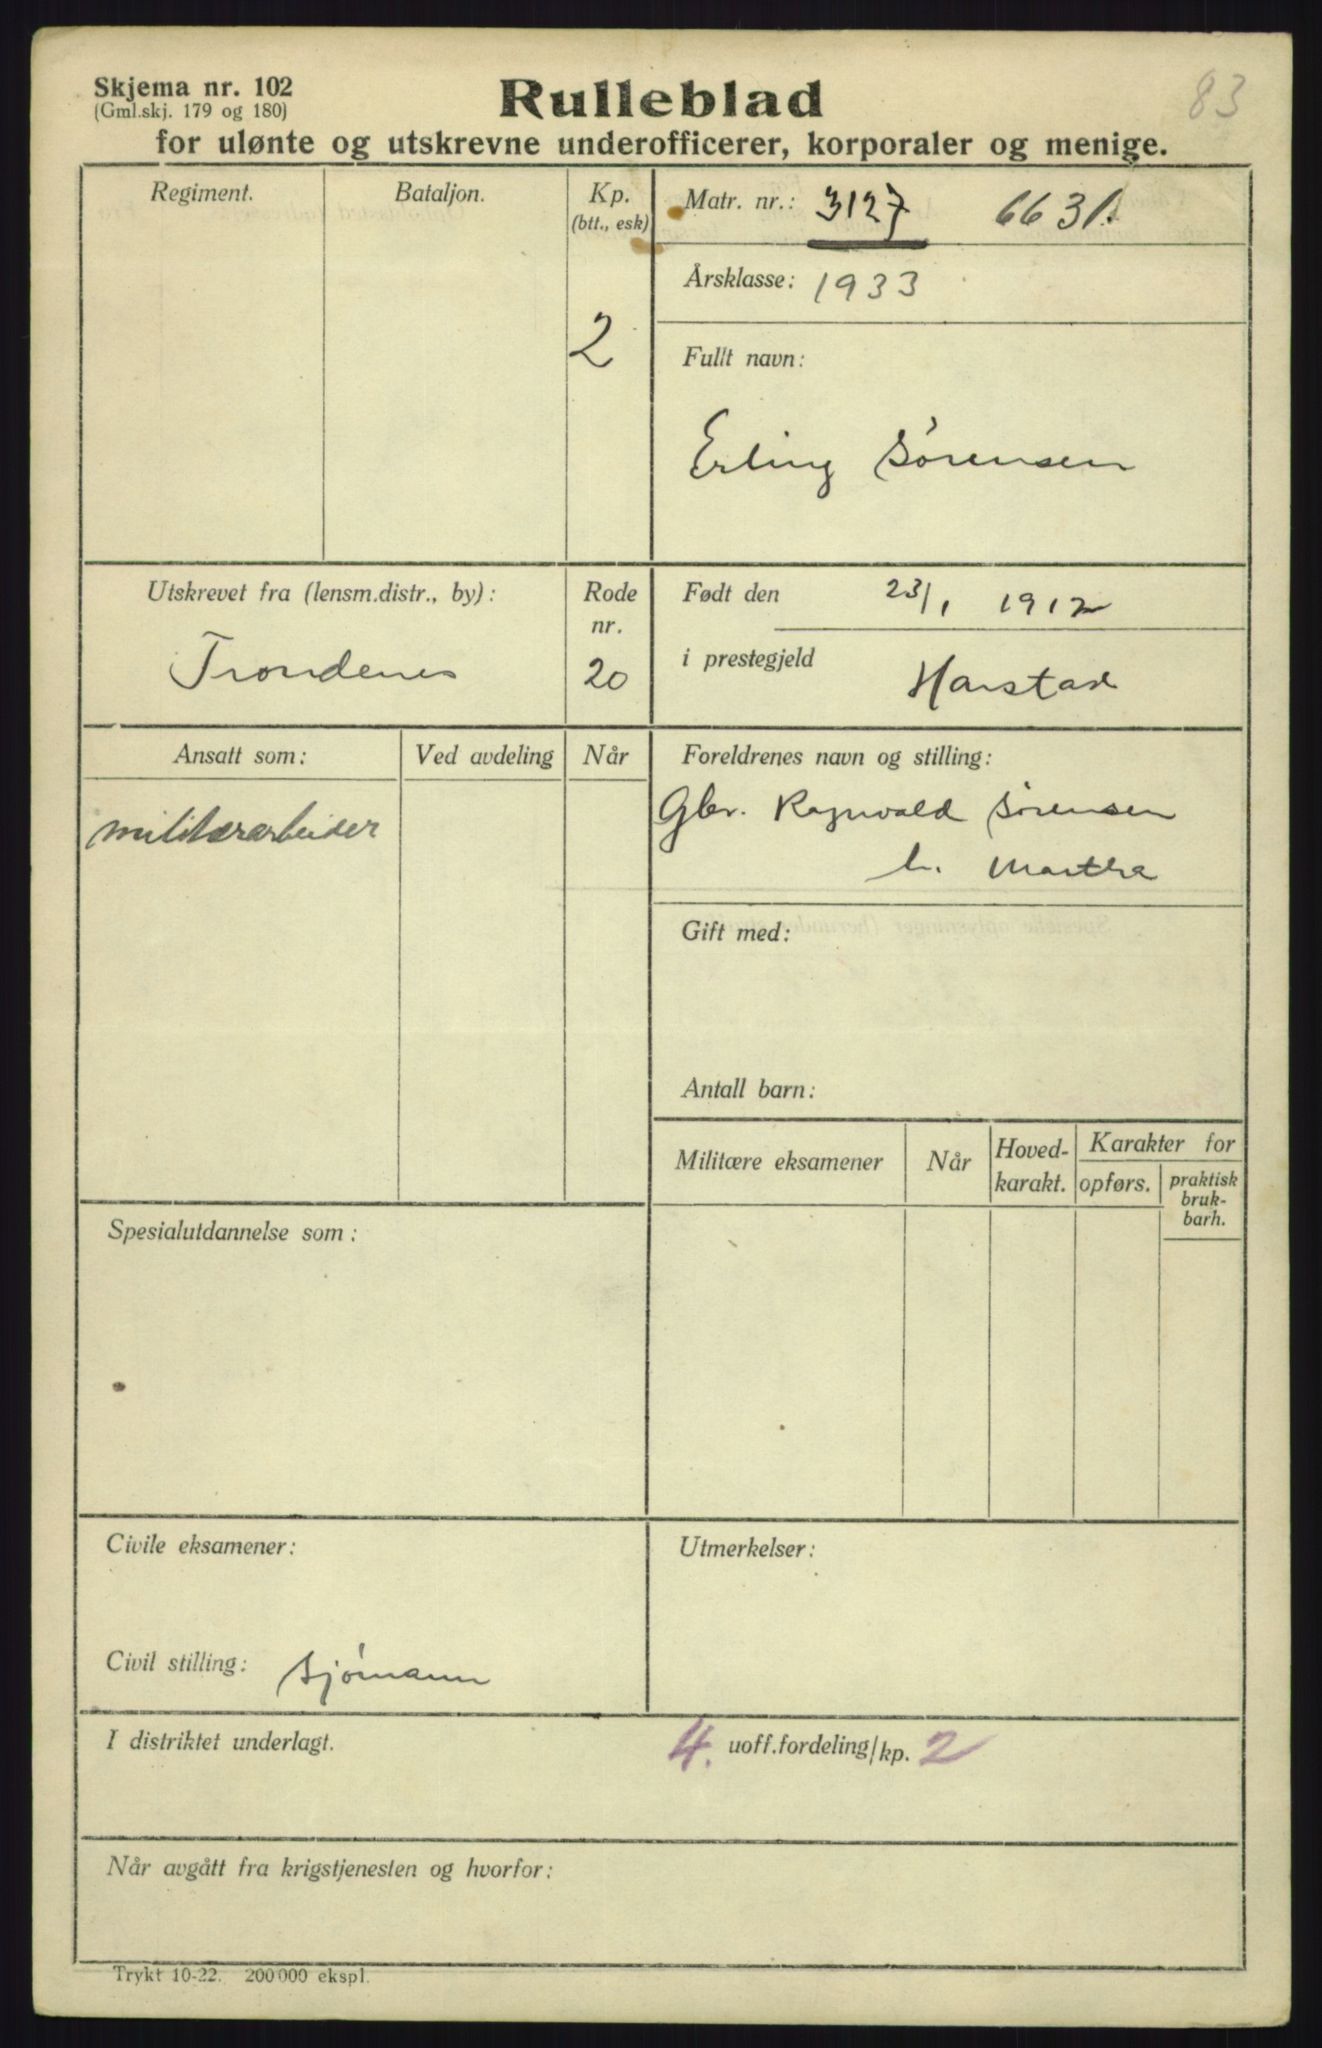 Skjema nr. 102
(Gml.skj. 179 og 180)
Rulleblad
83
for ulønte og utskrevne underofficerer, korporaler og menige.
Regiment.
Bataljon.
Kp.
(btt., esk)
2
Matr. nr.: 3127 6631.
Årsklasse: 1933
Fullt navn:
Erling Sørensen
Utskrevet fra (lensm.distr., by):
Trondenes
Rode
nr.
20
Født den 23/1 1912
i prestegjeld Harstad
Ansatt som:
Ved avdeling
Når
militærarbeider
Foreldrenes navn og stilling:
Gbr. Ragnvald Sørensen
h. Martha
Gift med:
Antall barn:
Militære eksamener
Når
Hoved-
karakt.
Karakter for
opførs.
praktisk
bruk-
barh.
Spesialutdannelse som:
Civile eksamener:
Civil stilling: sjømann
Utmerkelser:
I distriktet underlagt.
4. uoff.fordeling/kp. 2
Når avgått fra krigstjenesten og hvorfor:
Trykt 10-22. 200 000 ekspl.